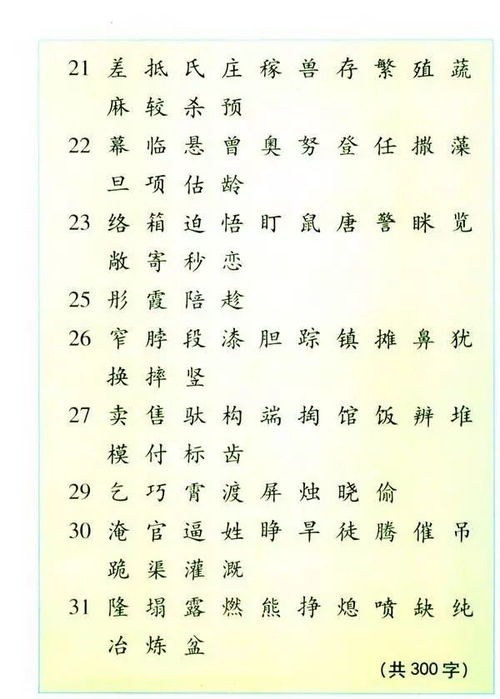 21 差 抵 氏 庄 稼 兽 存 繁 殖 蔬
麻 较 杀 预
22 幕 临 悬 曾 奥 努 登 任 撒 藻
旦 项 估 龄
23 络 箱 迫 悟 盯 鼠 唐 警 眯 览
敞 寄 秒 恋
25 彤 霞 陪 趁
26 窄 脖 段 漆 胆 踪 镇 摊 鼻 犹
换 摔 竖
27 卖 售 驮 构 端 掏 馆 饭 辨 堆
模 付 标 齿
29 乞 巧 霄 渡 屏 烛 晓 偷
30 淹 官 逼 姓 睁 旱 徒 腾 催 吊
跪 渠 灌 溉
31 隆 塌 露 燃 熊 挣 熄 喷 缺 纯
冶 炼 盆
(共300字)